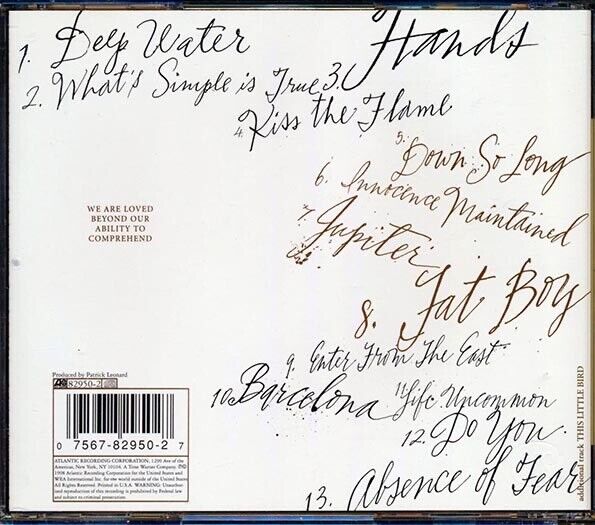 1. Deep Water
2. What's Simple is True
3. Hands
4. Kiss the Flame
5. Down So Long
6. Innocence Maintained
7. Jupiter
8. Fat Boy
9. Enter From The East
10. Barcelona
11. Life Uncommon
12. Do You
13. Absence of Fear
additional track THIS LITTLE BIRD
WE ARE LOVED
BEYOND OUR
ABILITY TO
COMPREHEND
Produced by Patrick Leonard
82950-2
0 7567-82950-2 7
ATLANTIC RECORDING CORPORATION, 1290 Ave of the
Americas, New York, NY 10104. A Time Warner Company. ℗©
1998 Atlantic Recording Corporation for the United States and
WEA International Inc. for the world outside of the United States.
All Rights Reserved. Printed in U.S.A. WARNING: Unauthor-
ized reproduction of this recording is prohibited by Federal law
and subject to criminal prosecution.